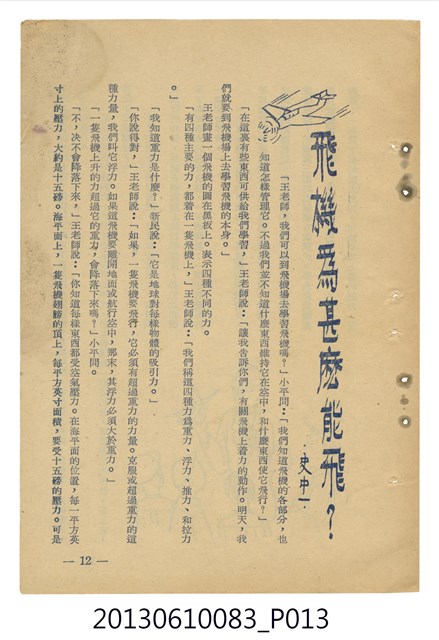 飛機為甚麼能飛？
·史中一·
「王老師，我們可以到飛機塲去學習飛機嗎？」小平問：「我們知道飛機的各部分，也
知道怎樣管理它。不過我們並不知道什麼東西維持它在空中，和什麼東西使它飛行？」
「在這裏有些東西可供給我們學習，」王老師說：「讓我告訴你們，有關飛機上着力的動作。明天，我
們就要到飛機塲上去學習飛機的本身。」
王老師畫一個飛機的圖在黑板上。表示四種不同的力。
「有四種主要的力，都着在一隻飛機上，」王老師說：「我們稱這四種力為重力、浮力、推力、和拉力
。」
「我知道重力是什麼？」新民說：「它是地球對每樣物體的吸引力。」
「你說得對，」王老師說：「如果，一隻飛機要飛行，它必須有超過重力的力量。克服或超過重力的這
種力量，我們叫它浮力。如果這飛機要離開地面或航行空中，那末，其浮力必須大於重力。」
「一隻飛機上升的力超過它的重力，會降落下來嗎？」小平問。
「不，决不會降落下來，」王老師說：「你知道每樣東西都受空氣壓力。在海平面的位置，每一平方英
寸上的壓力，大約是十五磅。海平面上，一隻飛機翅膀的頂上，每平方英寸面積，要受十五磅的壓力。可是
— 12 —
20130610083_P013